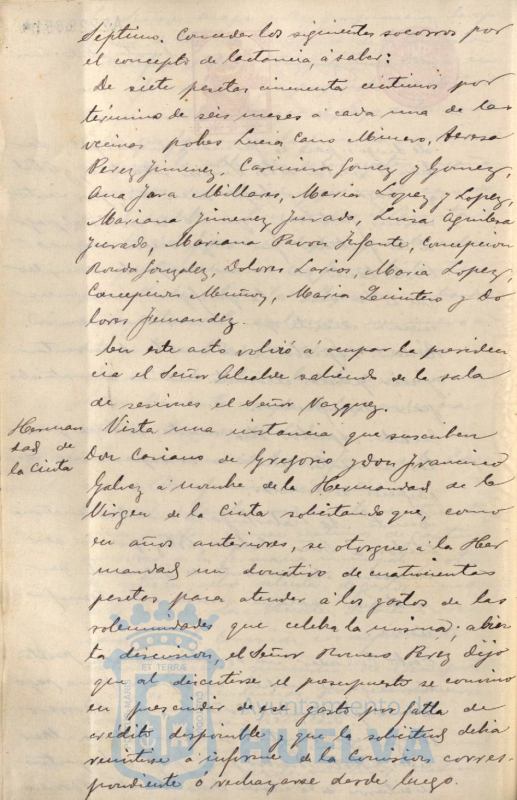 Séptimo. Conceder los siguientes socorros por
el concepto de lactancia, á saber:
De siete pesetas cincuenta céntimos por
término de seis meses á cada una de las
vecinas pobres Lucia Cano Minero, Teresa
Perez Jimenez, Casimira Gomez y Gomez,
Ana Jara Millares, Maria Lopez y Lopez,
Mariana Jimenez Jurado, Luisa Aguilera
Jurado, Mariana Pavon Infante, Concepcion
Ronda Gonzalez, Dolores Larios, Maria Lopez,
Concepcion Muñoz, Maria Quintero y Do
lores Fernandez.
En este acto volvió á ocupar la presiden
cia el Señor Alcalde saliendo de la sala
de sesiones el Señor Vazquez.
Herman
dad de
la Cinta
Vista una instancia que suscriben
Don Casiano de Gregorio y don Francisco
Galvez á nombre de la Hermandad de la
Virgen de la Cinta solicitando que, como
en años anteriores, se otorgue á la Her
mandad un donativo de cuatrocientas
pesetas para atender á los gastos de las
solemnidades que celebra la misma; abier
ta discusion, el Señor Romero Perez dijo
que al discutirse el presupuesto se convino
en prescindir de ese gasto por falta de
crédito disponible y que la solicitud debia
remitirse á informe de la Comision corres-
pondiente ó rechazarse desde luego.
Ayuntamiento de
HUELVA